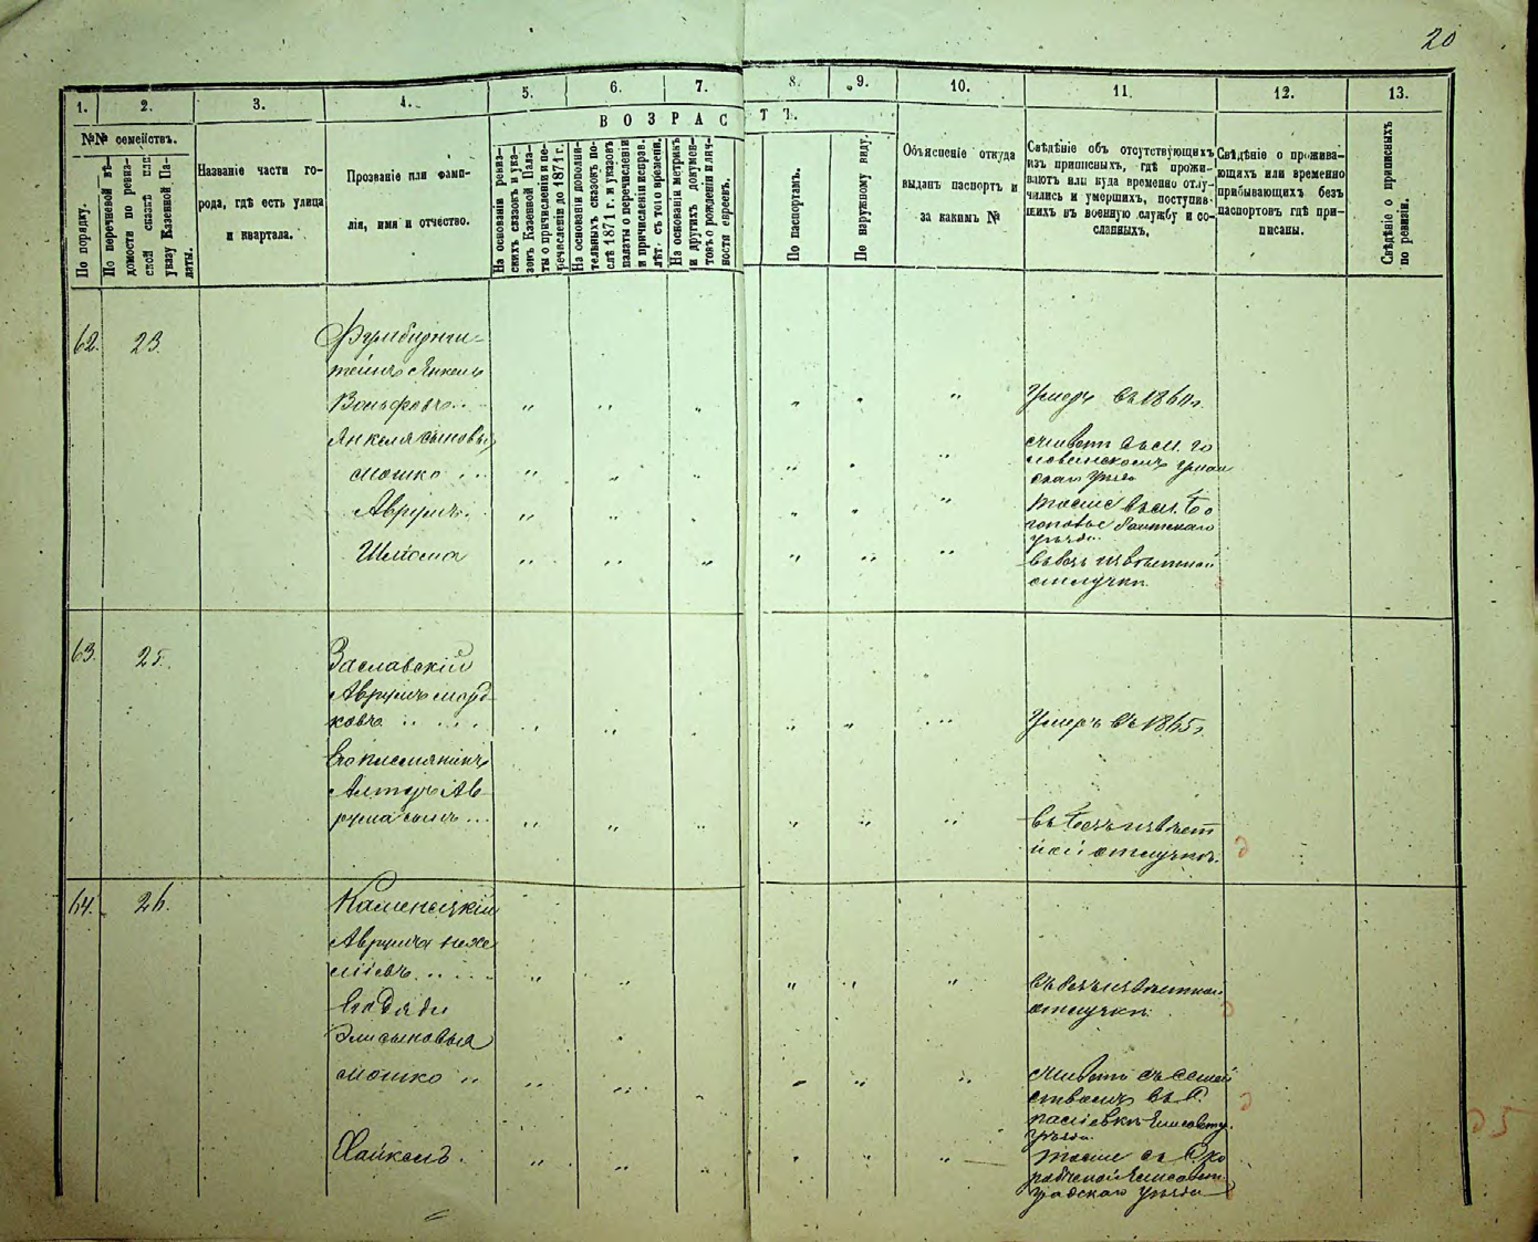 20
1. 2. 3. 4. 5. 6. 7. 8. 9. 10. 11. 12. 13.
В О З Р А С Т Ъ.
№№ семействъ.
По порядку.
По перечневой вѣ-
домости по ревиз-
ской сказкѣ или
указу Казенной Па-
латы.
Названіе части го-
рода, гдѣ есть улица
и квартала.
Прозваніе или фами-
лія, имя и отчество.
На основаніи ревиз-
скихъ сказокъ и ука-
зовъ Казенной Пала-
ты о причисленіи и пе-
речисленіи до 1871 г.
На основаніи дополни-
тельныхъ сказокъ по-
слѣ 1871 г. и указовъ
палаты о перечисленіи
и причисленіи неправ.
лѣт. съ того времени.
На основаніи метрикъ
и другихъ докумен-
товъ о рожденіи и лич-
ности евреевъ.
По паспортамъ.
По наружному виду.
Объясненіе откуда
выданъ паспортъ и
за какимъ №
Свѣдѣніе объ отсутствующихъ
изъ приписныхъ, гдѣ прожи-
ваютъ или куда временно отлу-
чились и умершихъ, поступив-
шихъ въ военную службу и со-
сланныхъ.
Свѣдѣніе о прожива-
ющихъ или временно
прибывающихъ безъ
паспортовъ гдѣ при-
писаны.
Свѣдѣніе о приписныхъ
по ревизіи.
62. 23.
тейнъ Янкель
Вольфовъ " " " " " " Умеръ въ 186 г.
Янкеля сыновья
Мошко " " " " " " Живетъ въ м.
скаго уѣзда
Аврумъ " " " " " " тоже въ м.
уѣзда.
Шлiома " " " " " " въ безъизвѣстной
отлучкѣ.
63. 25.
Заславскій
Аврумъ Морд-
ковъ " " " " " " Умеръ въ 1865 г.
Его племянникъ
Алтеръ Ав-
рума сынъ " " " " " " въ безъизвѣст
ной отлучкѣ.
64. 26.
Каменецкій
Аврумъ
" " " " " " въ безъизвѣстной
отлучкѣ.
Его дяди
Эли сыновья
Мошко " " " " " " Живетъ съ семей
ствомъ въ
уѣзда.
Хайкель " " " " " " тоже
градскаго уѣзда